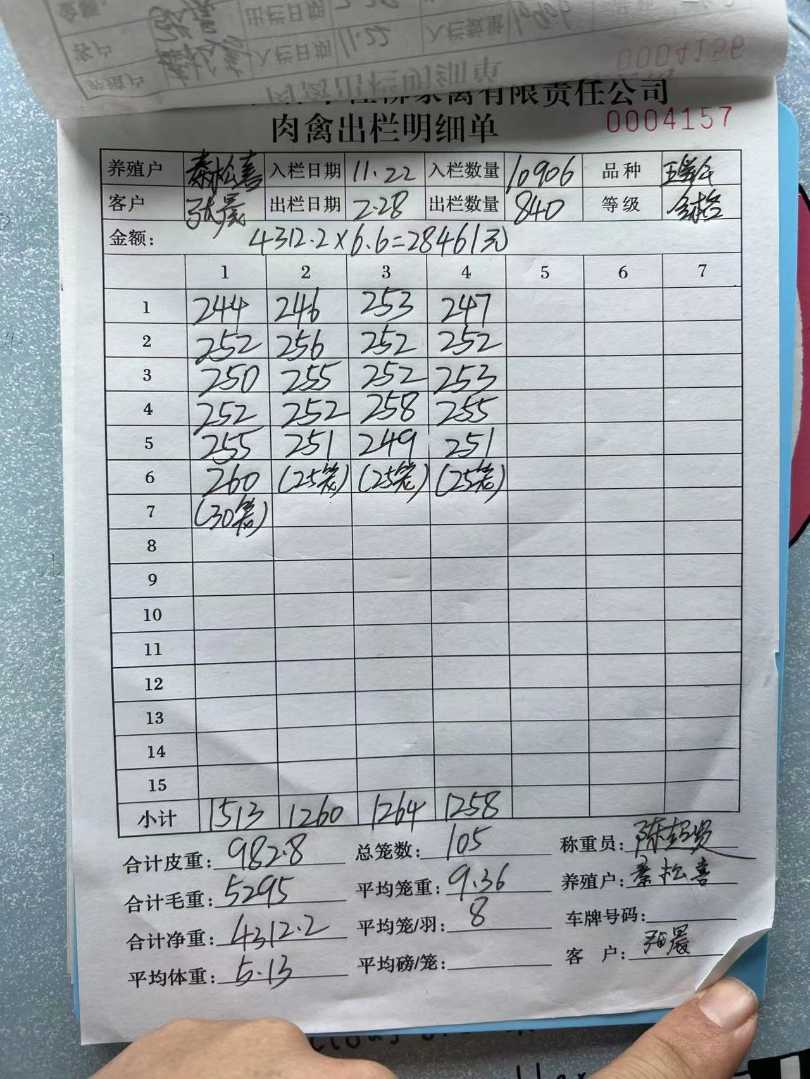 家禽有限责任公司
肉禽出栏明细单 0004157
养殖户 秦松喜 入栏日期 11.22 入栏数量 10906 品种
客户 张晨 出栏日期 2.28 出栏数量 840 等级
金额: 4312.2×6.6=28461元
1 2 3 4 5 6 7
1 244 246 253 247
2 252 256 252 252
3 250 255 252 253
4 252 252 258 255
5 255 251 249 251
6 260 (25笼) (25笼) (25笼)
7 (30笼)
8
9
10
11
12
13
14
15
小计 1513 1260 1264 1258
合计皮重: 982.8 总笼数: 105 称重员:
合计毛重: 5295 平均笼重: 9.36 养殖户: 秦松喜
合计净重: 4312.2 平均笼/羽: 8 车牌号码:
平均体重: 5.13 平均磅/笼: 客 户: 张晨